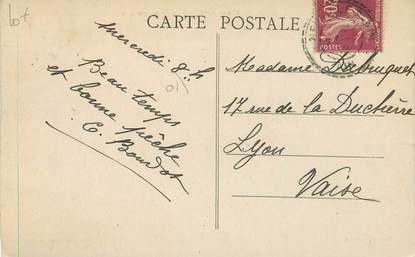 lot
CARTE POSTALE
Mercredi 8h
Beau temps
et bonne pêche
C. Boudot
Madame
17 rue de la Duchère
Lyon
Vaise